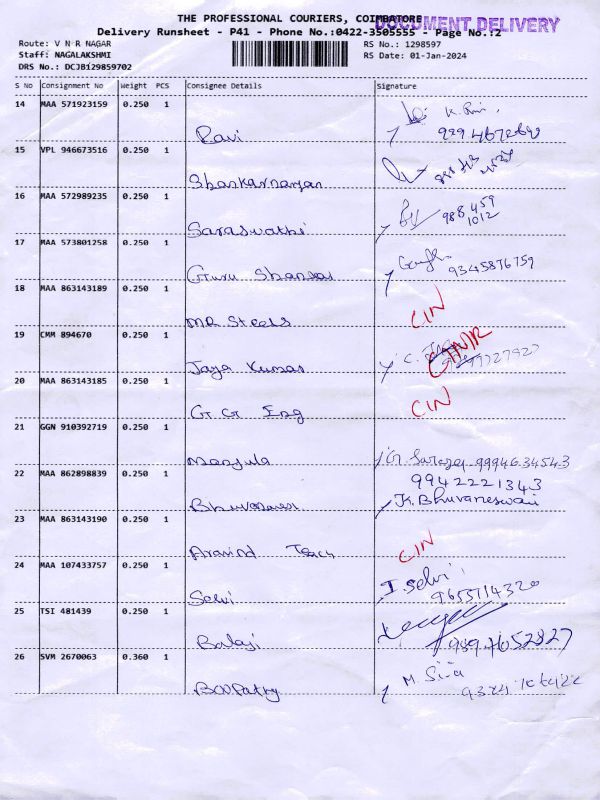 THE PROFESSIONAL COURIERS, COIMBATORE
DOCUMENT DELIVERY
Delivery Runsheet - P41 - Phone No.:0422-3505555 - Page No.:2
Route: V N R NAGAR RS No.: 1298597
Staff: NAGALAKSHMI RS Date: 01-Jan-2024
DRS No.: DCJB129859702
S No Consignment No Weight PCS Consignee Details Signature
14 MAA 571923159 0.250 1
K. Ravi
Ravi
15 VPL 946673516 0.250 1
Shankarnarayan
16 MAA 572989235 0.250 1
988 459
1012
Saraswathi
17 MAA 573801258 0.250 1
9345876759
Guru Shankar
18 MAA 863143189 0.250 1
CIN
MR Steels
19 CMM 894670 0.250 1
Jaya Kumar C.
20 MAA 863143185 0.250 1
CIN
G G Eng
21 GGN 910392719 0.250 1
Manjula 9994634543
22 MAA 862898839 0.250 1
9942221343
K. Bhuvaneswari
23 MAA 863143190 0.250 1
CIN
Aravind Teach
24 MAA 107433757 0.250 1
I. Selvi
Selvi 9655714320
25 TSI 481439 0.250 1
Balaji 9894652827
26 SVM 2670063 0.360 1
M. Siva
Boopathy